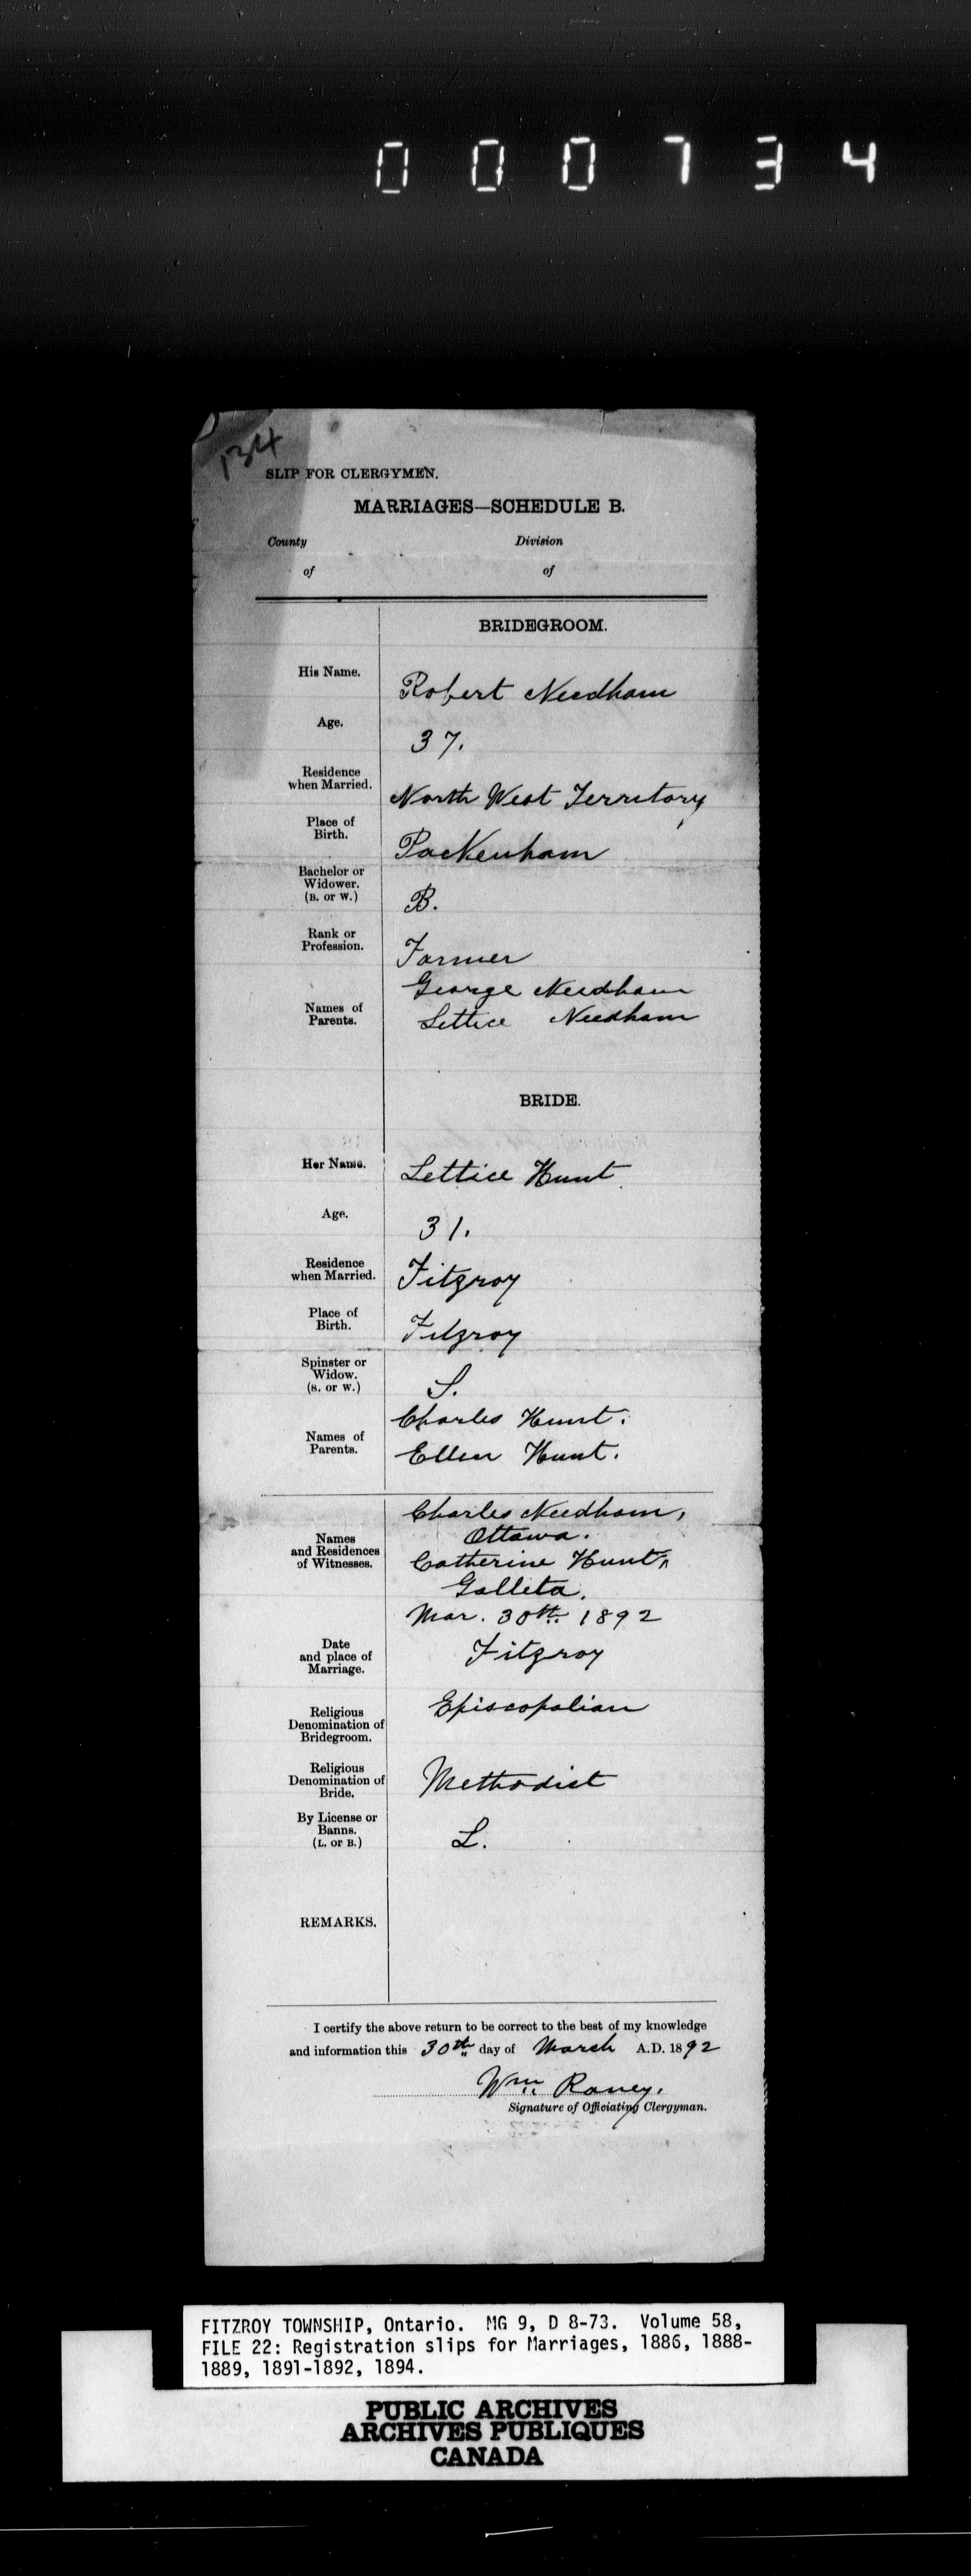 000734
134
SLIP FOR CLERGYMEN.
MARRIAGES—SCHEDULE B.
County Division
of of
BRIDEGROOM.
His Name. Robert Needham
Age. 37.
Residence when Married. North West Territory
Place of Birth. Packenham
Bachelor or Widower. (B. or W.) B.
Rank or Profession. Farmer
Names of Parents. George Needham
Lettice Needham
BRIDE.
Her Name. Lettice Hunt
Age. 31.
Residence when Married. Fitzroy
Place of Birth. Fitzroy
Spinster or Widow. (S. or W.) S.
Names of Parents. Charles Hunt.
Ellen Hunt.
Names and Residences of Witnesses. Charles Needham,
Ottawa.
Catherine Hunt,
Galleta.
Date and place of Marriage. Mar. 30th 1892
Fitzroy
Religious Denomination of Bridegroom. Episcopalian
Religious Denomination of Bride. Methodist
By License or Banns. (L. or B.) L.
REMARKS.
I certify the above return to be correct to the best of my knowledge
and information this 30th day of March A.D. 1892
Wm Raney.
Signature of Officiating Clergyman.
FITZROY TOWNSHIP, Ontario. MG 9, D 8-73. Volume 58,
FILE 22: Registration slips for Marriages, 1886, 1888-
1889, 1891-1892, 1894.
PUBLIC ARCHIVES
ARCHIVES PUBLIQUES
CANADA